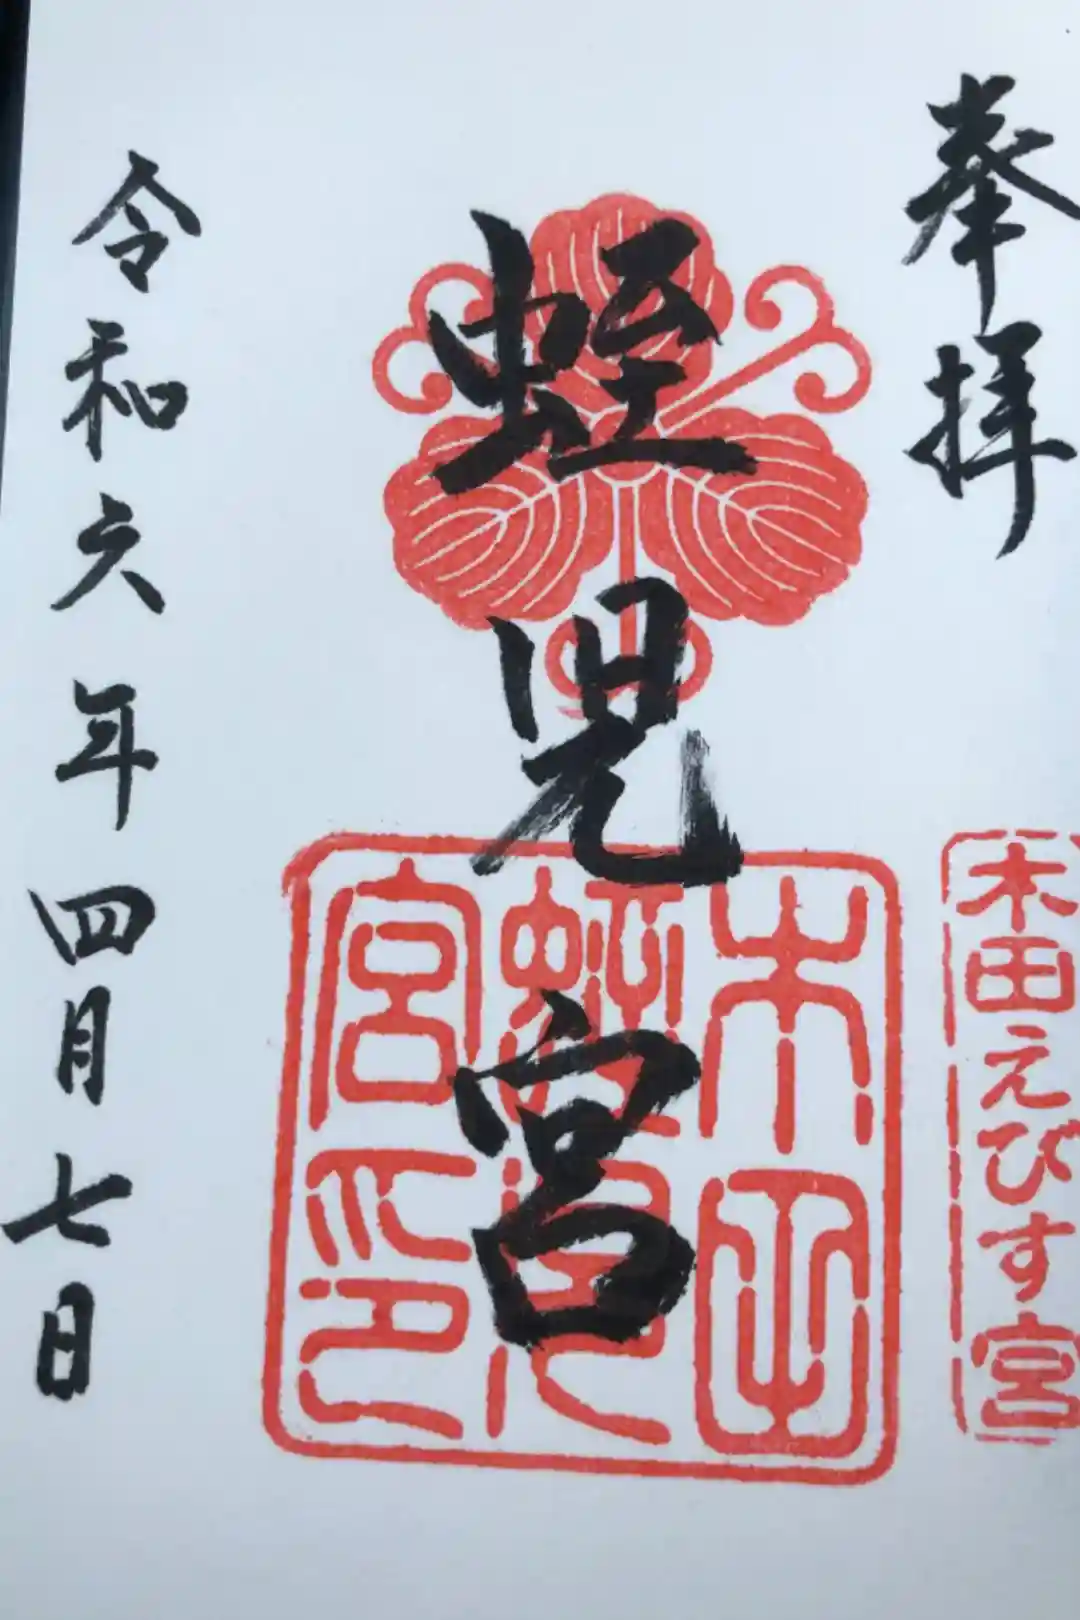 奉拝
木田えびす宮
蛭児宮
木
蛭児
宮印
令和六年四月七日